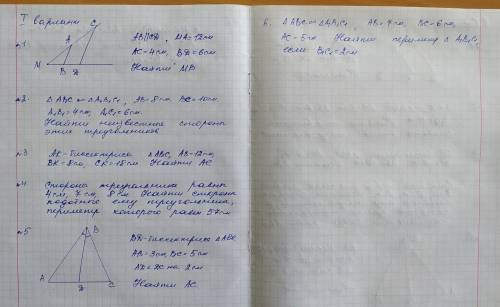 I вариант
№1
C
A
M
B
D
AB||CD MA=12см
AC=4см, BD=6см
Найти MB
№2. △ABC ∞ △A₁B₁C₁, AB=8см BC=10см
A₁B₁=4см, A₁C₁=6см.
Найти неизвестные стороны
этих треугольников
№3 AK-биссектриса △ABC, AB=12см,
BK=8см, CK=18см Найти AC
№4 Стороны треугольника равны
4см, 7см, 8см Найти стороны
подобного ему треугольника,
периметр которого равен 57см
№5
B
A
D
C
BD-биссектриса △ABC
AB=3см BC=5см
AD=DC на 2см
Найти AC
6. △ABC ∞ △A₁B₁C₁, AB=7см, BC=6см,
AC=5см Найти периметр △A₁B₁C₁,
если B₁C₁=2см